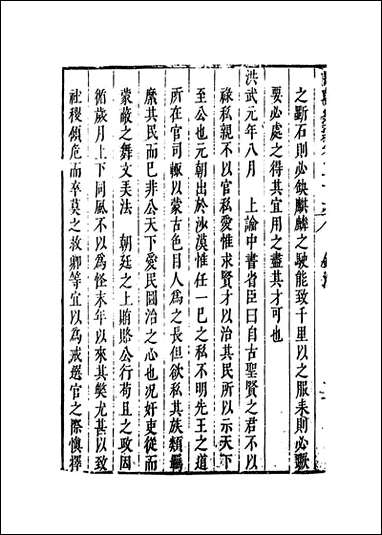 之斲石則必缺麒麟之駛能致千里以之服耒則必蹶
要必處之得其宜用之盡其才可也
洪武元年八月　上諭中書省臣曰自古聖賢之君不以
祿私親不以官私愛惟求賢才以治其民所以示天下
至公也元朝出於沙漠惟任一巳之私不明先王之道
所在官司輒以蒙古色目人為之長但欲私其族類羈
縻其民而巳非公天下愛民圖治之心也况奸吏從而
蒙蔽之舞文丟法　朝廷之上賄賂公行苟且之政因
循歲月上下同風不以為怪末年以來其弊尤甚以致
社稷傾危而卒莫之救卿等宜以為戒選官之際慎擇